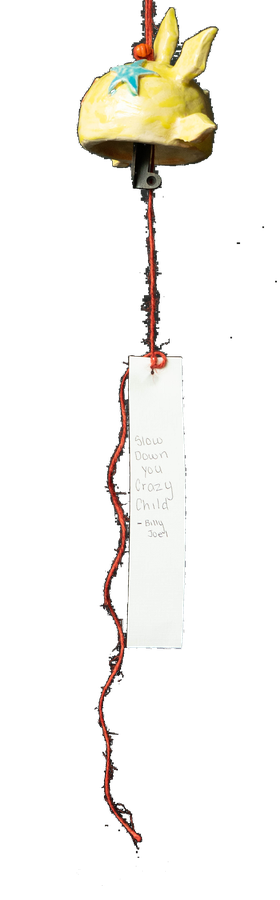 Slow
Down
you
Crazy
Child
- Billy
Joel